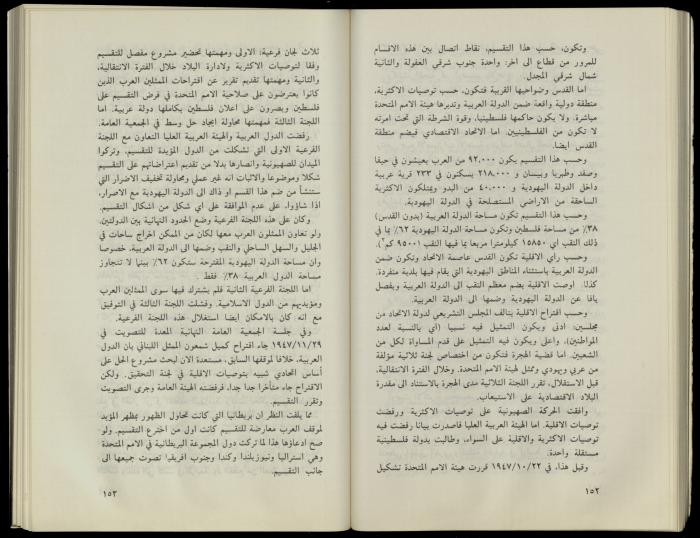 وتكون، حسب هذا التقسيم، نقاط اتصال بين هذه الاقسام
للمرور من قطاع الى اخر: واحدة جنوب شرقي العفولة والثانية
شمال شرقي المجدل.
اما القدس وضواحيها القريبة فتكون، حسب توصيات الاكثرية،
منطقة دولية واقعة ضمن الدولة العربية وتديرها هيئة الامم المتحدة
مباشرة. ولا يكون حاكمها فلسطينيا، وقوة الشرطة التي تحت امرته
لا تكون من الفلسطينيين. اما الاتحاد الاقتصادي فيضم منطقة
القدس ايضا.
وحسب هذا التقسيم يكون ٩٢،٠٠٠ من العرب يعيشون في حيفا
وصفد وطبريا وبيسان و ٢١٨،٠٠٠ يسكنون في ٢٣٣ قرية عربية
داخل الدولة اليهودية و ٤٠،٠٠٠ من البدو ويمتلكون الاكثرية
الساحقة من الاراضي المستصلحة في الدولة اليهودية.
وحسب هذا التقسيم تكون مساحة الدولة العربية (بدون القدس)
٣٨٪ من مساحة فلسطين وتكون مساحة الدولة اليهودية ٦٢٪ بما في
ذلك النقب اي ١٥٨٥٠ كيلومترا مربعا بما فيها النقب (٩٥٠٠ كم٢).
وحسب رأي الاقلية تكون القدس عاصمة الاتحاد وتكون ضمن
الدولة العربية باستثناء المناطق اليهودية التي يقام فيها بلدية منفردة.
كذلك اوصت الاقلية بضم معظم النقب الى الدولة العربية وبفصل
يافا عن الدولة اليهودية وضمها الى الدولة العربية.
وحسب اقتراح الاقلية يتألف المجلس التشريعي لدولة الاتحاد من
مجلسين: ادنى ويكون التمثيل فيه نسبيا (أي بالنسبة لعدد
المواطنين)، واعلى ويكون فيه التمثيل على قدم المساواة لكل من
الشعبين. اما قضية الهجرة فتكون من اختصاص لجنة ثلاثية مؤلفة
من عربي ويهودي وممثل لهيئة الامم المتحدة. وخلال الفترة الانتقالية،
قبل الاستقلال، تقرر اللجنة الثلاثية مدى الهجرة بالاستناد الى مقدرة
البلاد الاقتصادية على الاستيعاب.
وافقت الحركة الصهيونية على توصيات الاكثرية ورفضت
توصيات الاقلية. اما الهيئة العربية العليا فاصدرت بيانا رفضت فيه
توصيات الاكثرية والاقلية على السواء، وطالبت بدولة فلسطينية
مستقلة واحدة.
وقبل هذا، في ١٩٤٧/١٠/٢٢ قررت هيئة الامم المتحدة تشكيل
١٥٢
ثلاث لجان فرعية: الاولى ومهمتها تحضير مشروع مفصل للتقسيم
وفقا لتوصيات الاكثرية ولادارة البلاد خلال الفترة الانتقالية،
والثانية ومهمتها تقديم تقرير عن اقتراحات الممثلين العرب الذين
كانوا يعترضون على صلاحية الامم المتحدة في فرض التقسيم على
فلسطين ويصرون على اعلان فلسطين بكاملها دولة عربية. اما
اللجنة الثالثة فمهمتها محاولة ايجاد حل وسط في الجمعية العامة.
رفضت الدول العربية والهيئة العربية العليا التعاون مع اللجنة
الفرعية الاولى التي تشكلت من الدول المؤيدة للتقسيم، وتركوا
الميدان للصهيونية وانصارها بدلا من تقديم اعتراضاتهم على التقسيم
شكلا وموضوعا والاثبات انه غير عملي ومحاولة تخفيف الاضرار التي
ستنشأ من ضم هذا القسم او ذاك الى الدولة اليهودية مع الاصرار،
اذا شاؤوا، على عدم الموافقة على اي شكل من اشكال التقسيم.
وكان على هذه اللجنة الفرعية وضع الحدود النهائية بين الدولتين.
ولو تعاون الممثلون العرب معها لكان من الممكن اخراج ساحات في
الجليل والسهل الساحلي والنقب وضمها الى الدولة العربية، خصوصا
وان مساحة الدولة اليهودية المقترحة ستكون ٦٢٪ بينما لا تتجاوز
مساحة الدول العربية ٣٨٪ فقط.
اما اللجنة الفرعية الثانية فلم يشترك فيها سوى الممثلين العرب
ومؤيديهم من الدول الاسلامية. وفشلت اللجنة الثالثة في التوفيق
مع انه كان بالامكان ايضا استغلال هذه اللجنة الفرعية.
وفي جلسة الجمعية العامة النهائية المعدة للتصويت في
١٩٤٧/١١/٢٩ جاء اقتراح كميل شمعون الممثل اللبناني بان الدول
العربية، خلافا لموقفها السابق، مستعدة الان لبحث مشروع الحل على
أساس اتحادي شبيه بتوصيات الاقلية في لجنة التحقيق. ولكن
الاقتراح جاء متأخرا جدا جدا، فرفضته الهيئة العامة وجرى التصويت
وتقرر التقسيم.
مما يلفت النظر ان بريطانيا التي كانت تحاول الظهور بمظهر المؤيد
لموقف العرب معارضة للتقسيم كانت اول من اخترع التقسيم. ولو
صح ادعاؤها هذا لما تركت دول المجموعة البريطانية في الامم المتحدة
وهي استراليا ونيوزيلندا وكندا وجنوب افريقيا تصوت جميعها الى
جانب التقسيم.
١٥٣